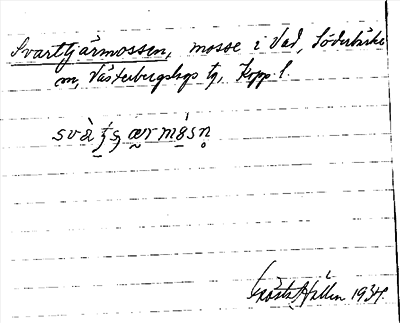 Svarttjärmossen, mosse i Vad, Söderbärke
sn, Västerbergslags tg, Kopp l.
Gösta Hallin 1934.